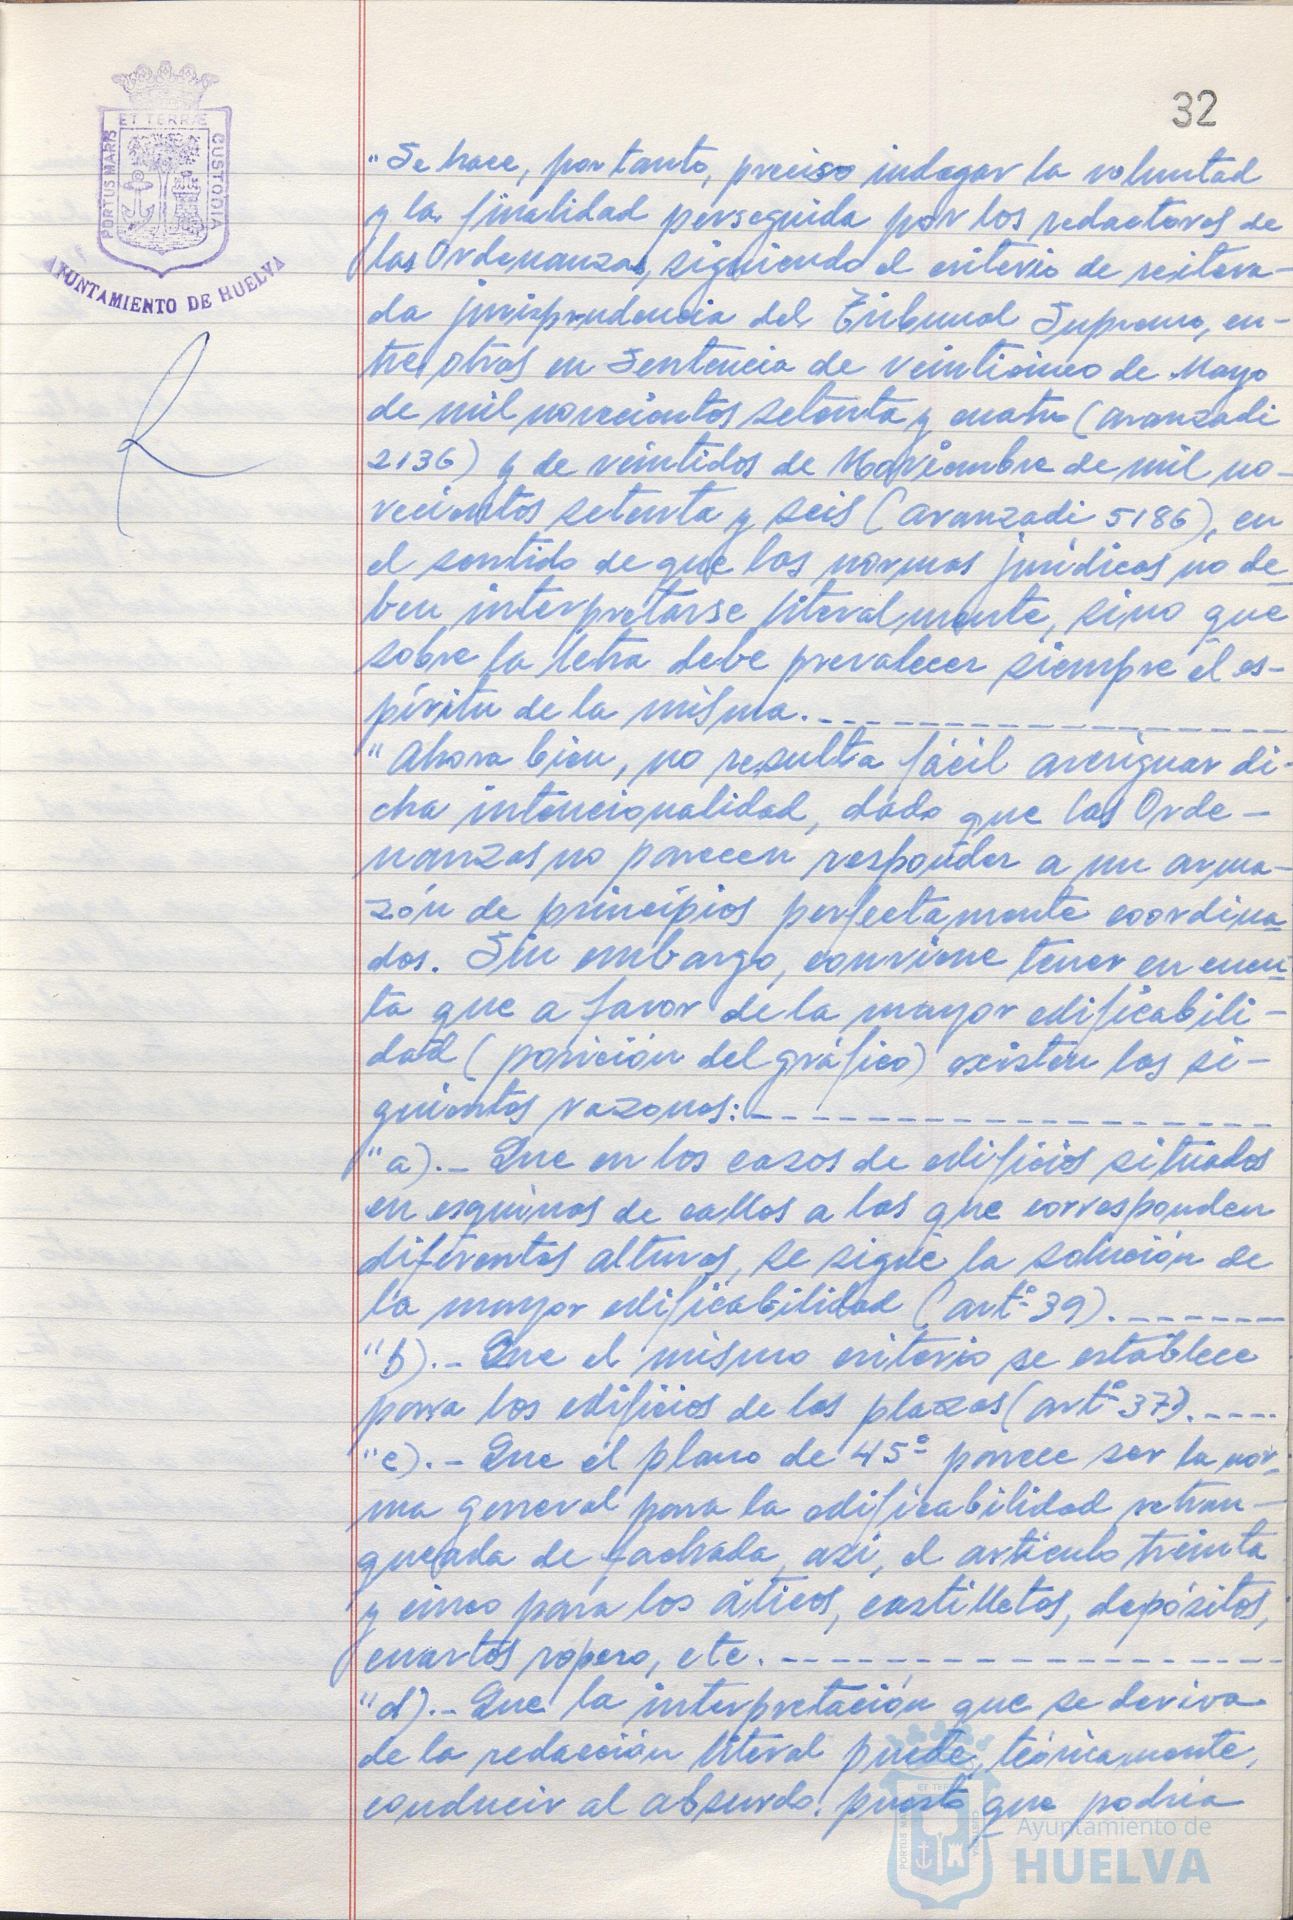 ET TERRÆ
PORTUS MARIS
CUSTODIA
AYUNTAMIENTO DE HUELVA
32
"Se hace, por tanto, preciso indagar la voluntad
y la finalidad perseguida por los redactores de
las Ordenanzas, siguiendo el criterio de reitera-
da jurisprudencia del Tribunal Supremo, en-
tre otras en Sentencia de veinticinco de Mayo
de mil novecientos setenta y cuatro (aranzadi
2136) y de veintidos de Noviembre de mil no-
vecientos setenta y seis (aranzadi 5186), en
el sentido de que las normas jurídicas no de-
ben interpretarse literalmente, sino que
sobre la letra debe prevalecer siempre el es-
píritu de la misma.
"Ahora bien, no resulta fácil averiguar di-
cha intencionalidad, dado que las Orde-
nanzas no parecen responder a un arma-
zón de principios perfectamente coordina-
dos. Sin embargo, conviene tener en cuen-
ta que a favor de la mayor edificabili-
dad (posición del gráfico) existen las si-
guientes razones:
"a).- Que en los casos de edificios situados
en esquinas de calles a las que corresponden
diferentes alturas, se sigue la solución de
la mayor edificabilidad (artº 39).
"b).- Que el mismo criterio se establece
para los edificios de las plazas (artº 37).
"c).- Que el plano de 45º parece ser la nor-
ma general para la edificabilidad retran-
queada de fachada, así, el artículo treinta
y cinco para los áticos, castilletes, depósitos,
cuartos ropero, etc.
"d).- Que la interpretación que se deriva
de la redacción literal puede, teóricamente,
conducir al absurdo, puesto que podría
ET TERRÆ
PORTUS MARIS
CUSTODIA
Ayuntamiento de
HUELVA